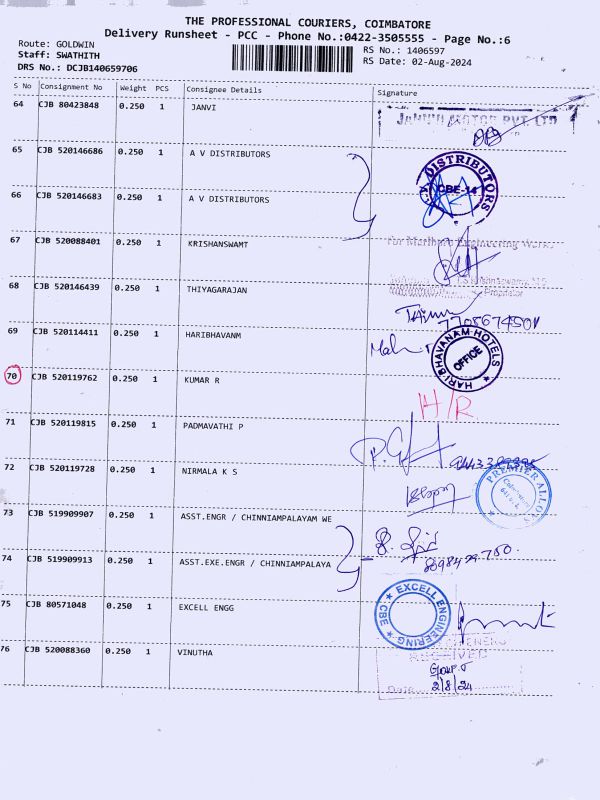 THE PROFESSIONAL COURIERS, COIMBATORE
Delivery Runsheet - PCC - Phone No.:0422-3505555 - Page No.:6
Route: GOLDWIN
Staff: SWATHITH
DRS No.: DCJB140659706
RS No.: 1406597
RS Date: 02-Aug-2024
S No Consignment No Weight PCS Consignee Details Signature
64 CJB 80423848 0.250 1 JANVI
65 CJB 520146686 0.250 1 A V DISTRIBUTORS
DISTRIBUTORS
CBE-14
66 CJB 520146683 0.250 1 A V DISTRIBUTORS
67 CJB 520088401 0.250 1 KRISHANSWAMT
68 CJB 520146439 0.250 1 THIYAGARAJAN
69 CJB 520114411 0.250 1 HARIBHAVANM
HARIBHAVANAM HOTELS
OFFICE
70 CJB 520119762 0.250 1 KUMAR R
H/R
71 CJB 520119815 0.250 1 PADMAVATHI P
72 CJB 520119728 0.250 1 NIRMALA K S
PREMIER ALLOYS
73 CJB 519909907 0.250 1 ASST.ENGR / CHINNIAMPALAYAM WE
74 CJB 519909913 0.250 1 ASST.EXE.ENGR / CHINNIAMPALAYA
75 CJB 80571048 0.250 1 EXCELL ENGG
EXCELL ENGINEERING
CBE
76 CJB 520088360 0.250 1 VINUTHA
Date
2/8/24